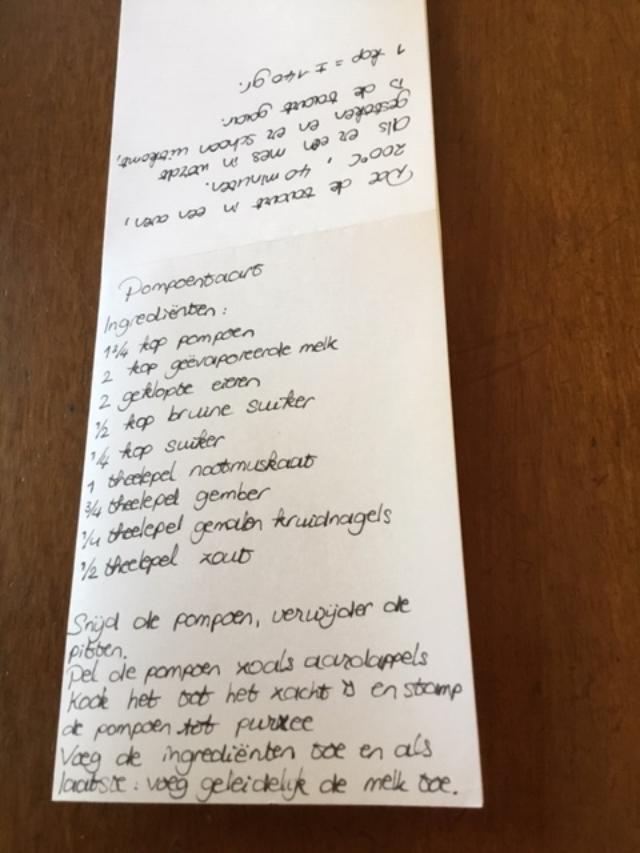 Pompoentaart
Ingrediënten:
1 3/4 kop pompoen
2 kop geëvaporeerde melk
2 geklopte eieren
1/2 kop bruine suiker
1/4 kop suiker
1 theelepel nootmuskaat
3/4 theelepel gember
1/4 theelepel gemalen kruidnagels
1/2 theelepel zout
Snijd de pompoen, verwijder de
pitten.
Pel de pompoen zoals aardappels
Kook het tot het zacht is en stamp
de pompoen tot purree
Voeg de ingrediënten toe en als
laatste: voeg geleidelijk de melk toe.
Doe de taart in een oven,
200°C, 40 minuten.
Als er een mes in wordt
gestoken en er schoon uitkomt,
is de taart gaar.
1 kop = ± 140 gr.